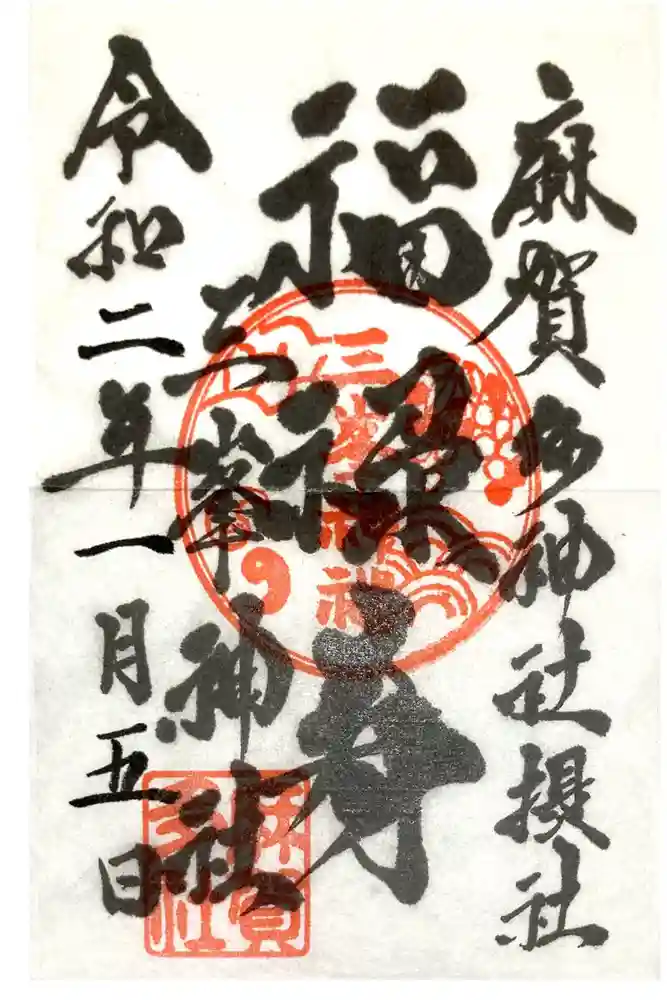 麻賀多神社摂社
福祿寿
三峯神社
令和二年一月五日
三峯神社